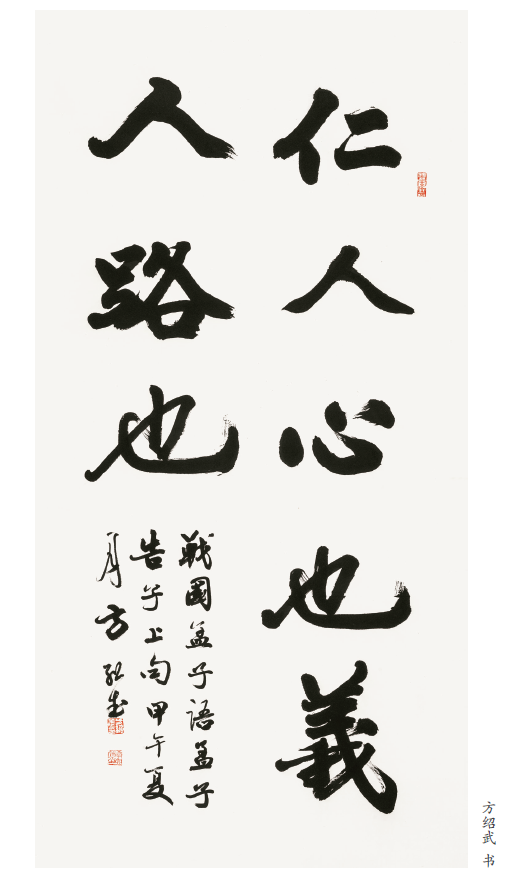 仁人心也義
人路也
戰國孟子語孟子
告子上句甲午夏
月方紹武
方绍武 书